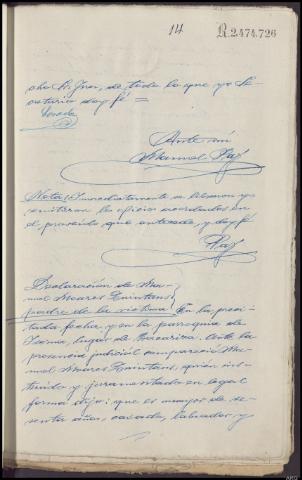 14
R.2.474.726
cho Sr. Juez, de todo lo que yo Se-
cretario doy fé =
Losada
Ante mí
Manuel Paz
Nota/ Inmediatamente se libraron y
remitieron los oficios acordados en
el proveido que antecede, y doy fé
Paz
Declaración de Ma-
nuel Moares Quintans
padre de la victima/ En la preci-
tada fecha, y en la parroquia de
lugar de ante la
presencia judicial compareció Ma-
nuel Moares Quintans, quien ins-
truido y juramentado en legal
forma dijo: que es mayor de se-
senta años, casado, labrador, y